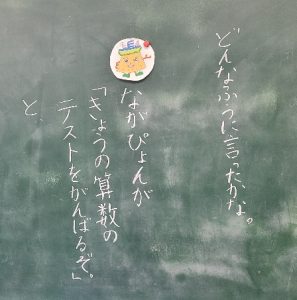 どんなふうに言ったかな。
ながぴょんが
「きょうの算数の
テストをがんばるぞ。」
と、